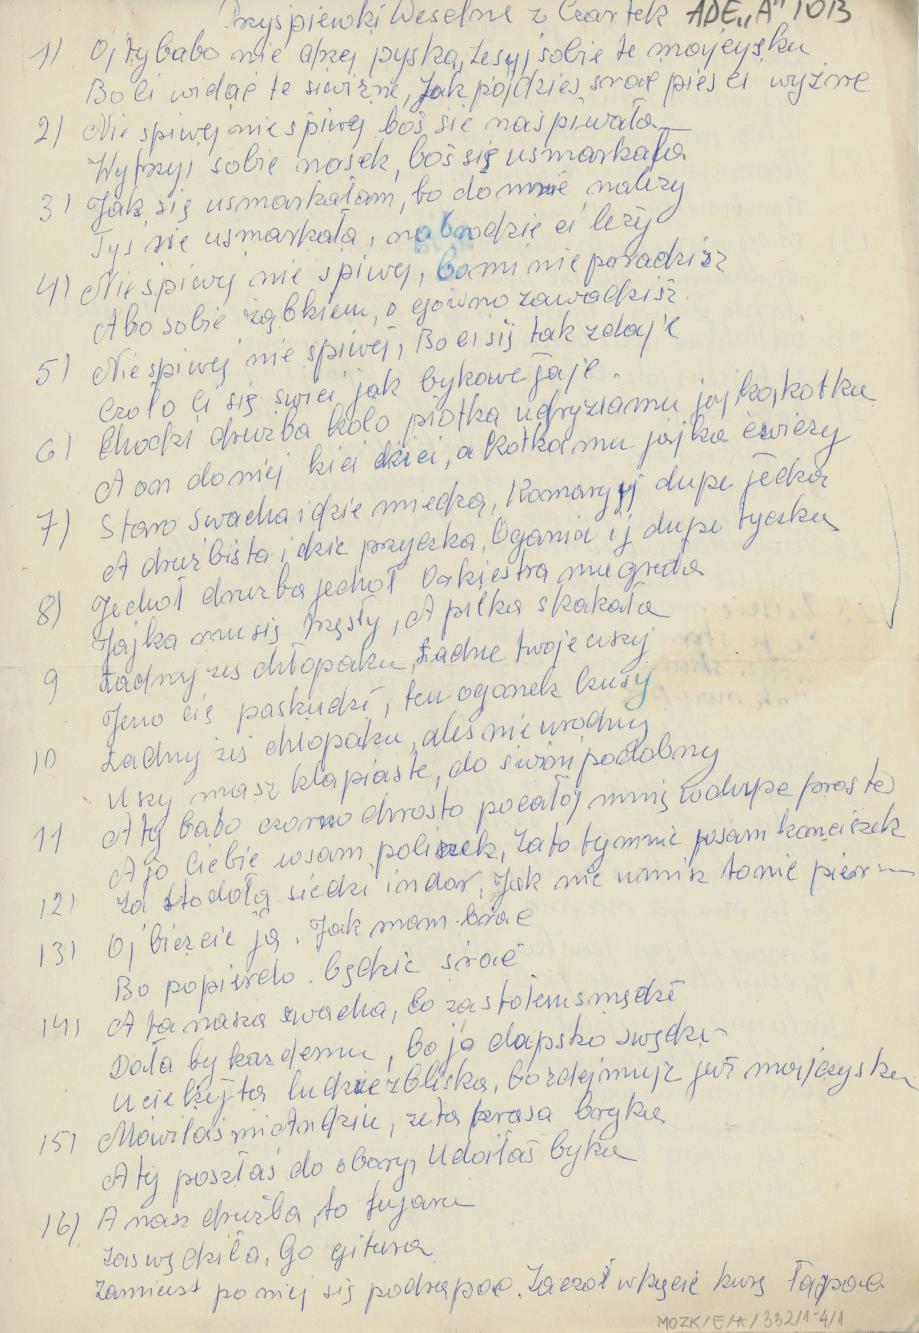 Przyśpiewki Weselne z Czartek ADE „A” 1013
1) Oj ty babo nie drzej pyska, zesyj sobie te majcysku
Bo ci widać te siwizne, Jak pójdzies srać pies ci wyżre
2) Nie spiwej nie śpiwej boś się naśpiwała
Wytrzyj sobie nosek, boś się usmarkała
3) Jak się usmarkałam, bo do mnie należy
Tyś sie usmarkała, na brodzie ci leży
4) Nie spiwej nie spiwej, bo mi nie poradzisz
Abo sobie ząbkiem, o gówno zawadzisz
5) Nie spiwej nie spiwej, Bo ci się tak zdaje
Czoło ci się swici jak bykowe jaje.
6) Chodzi drużba koło płotka ugryzła mu jajka, kotka
A on do niej kici kici, a kotka mu jajka ćwiczy
7) Staro swacha idzie miedzą, Komary ij dupe jedzą
A druzbista idzie przyczką, Ogania ij dupe tyczką
8) Jechoł druzba jechoł Orkiestra mu grała
Jajka mu się trzęsły, A pilka skakała
9 Ładny żeś chłopaku, Ładne twoje uszy
Jeno cię paskudzi, ten ogonek kusy
10 Ładny żeś chłopaku, aleś nie urodny
Uszy masz klapiaste, do świni podobny
11 A ty babo czarno chrosto pocałój mnie w dupe prosto
A jo ciebie wsam policzek, Za to ty mnie wsam kanciczek
12) Za stodołą siedzi indor, Jak nie umisz to nie pier---
13) Oj bierzcie ją. Jak mam brać
Bo popierdo. będzie srać
14) A ta nasza swacha, co za stołem smędzi
Dała by kazdemu, bo ją dupsko swędzi
Uciekejta ludzie zbliska, bo zdejmuje już majczyska
15) Mówiłaś mi Andziu, ze ta krasa bryka
A ty poszłaś do obory, Udoiłaś byka
16) A nasz drużba, to fujara
Zaswędziła, Go gitara
Zamiast po niej się podrapać. Zaczął w kącie kurę łapać
MOZK/E/A/332/1-4/1